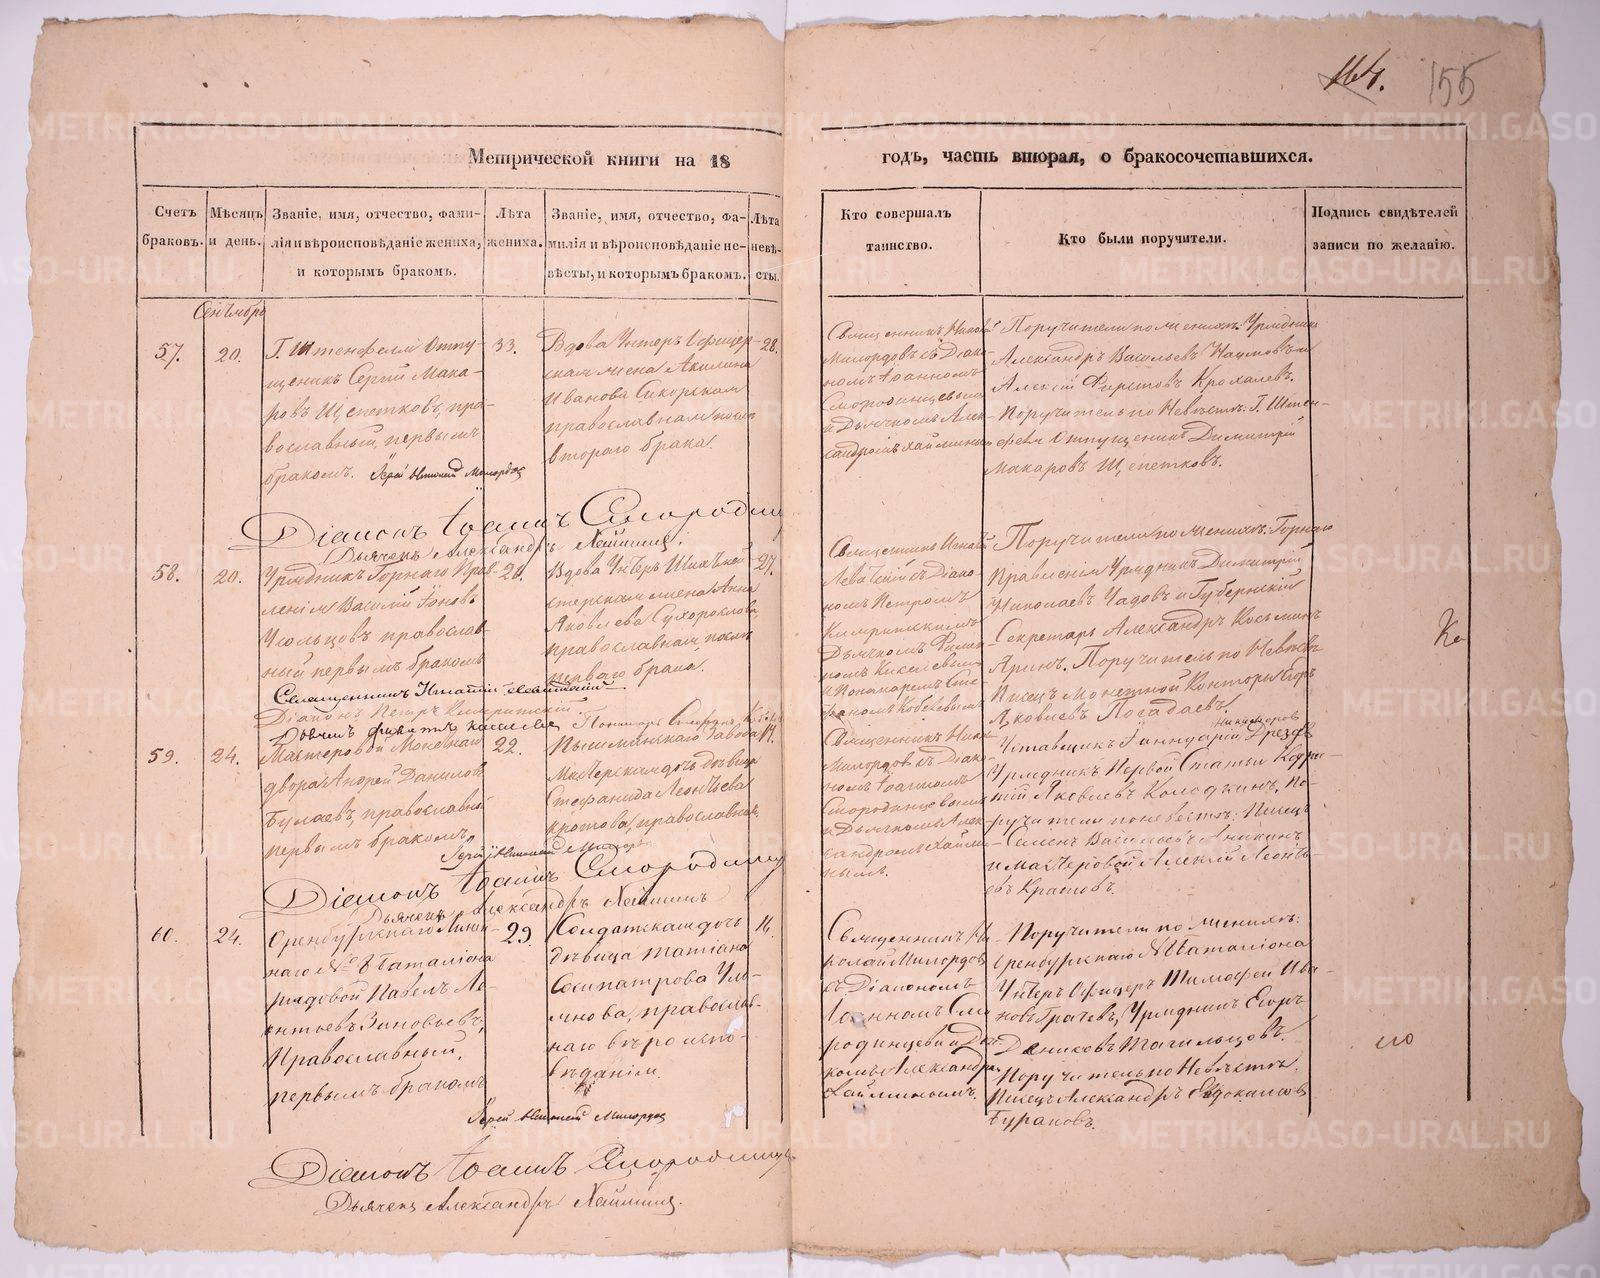 155
Метрической книги на 18
годъ, часть вторая, о бракосочетавшихся.
Счетъ браковъ.
Мѣсяцъ и день.
Званіе, имя, отчество, фами-
лія и вѣроисповѣданіе жениха,
и которымъ бракомъ.
Лѣта жениха.
Званіе, имя, отчество, фа-
милія и вѣроисповѣданіе не-
вѣсты, и которымъ бракомъ.
Лѣта невѣ-
сты.
Кто совершалъ
таинство.
Кто были поручители.
Подпись свидѣтелей
записи по желанію.
Сентябрь
57.
20.
Г. Штенфельн Отпу-
щеникъ Сергій Мака-
ровъ Щепетковъ, пра-
вославный, первымъ
бракомъ.
33.
Вдова Унтеръ Офицер-
ская жена Акилина
Иванова Сикорская
православная после
втораго брака.
28.
Священникъ Никол
Милордовъ съ Діако-
номъ Іоанномъ
Смородинцевымъ
и Дьячкомъ Алек-
сандромъ Хайминым
Поручители по женихѣ: Урядник
Александръ Васильевъ Наумовъ и
Алексій Крохалевъ.
Поручитель по Невѣстѣ: Г. Штен-
фельн Отпущеникъ Димитрій
Макаровъ Щепетковъ.
Іерей Николай Милордов
Діаконъ Іоаннъ Смородинц
Дьячекъ Александръ Хайминъ.
58.
20.
Урядникъ Горнаго Прав-
ленія Василій Іоновъ
православ-
ный первымъ бракомъ
26.
Вдова Унтеръ Шихтмей-
стерская жена Анна
Яковлева Сухорослова,
православная, послѣ
перваго брака.
27.
Священникъ Игнатій
Левитскій съ Діако-
номъ Петромъ
Дьячкомъ Филип-
помъ Киселевымъ
и Пономаремъ Сте-
фаномъ
Поручители по женихѣ: Горнаго
Правленія Урядникъ Димитрій
Николаевъ Чадовъ и Губернскій
Секретарь Александръ Косьминъ
Яринъ. Поручитель по Невѣстѣ
Писецъ Монетной Конторы Егоръ
Яковлевъ Погадаевъ.
Священникъ Игнатій Левитскій
Діаконъ Петръ
Дьячекъ Филиппъ Киселев
Пономарь Стефанъ
59.
24.
Мастеровой Монетнаго
двора Андрей Даниловъ
Булаевъ, православный
первымъ бракомъ,
22.
Пышминскаго Завода
Мастерская дочь дѣвица
Стефанида Леонтьева
Кротова, православная,
17.
Священникъ Ник.
Милордов съ Діако-
номъ Іоанномъ
Смородинцовымъ
и Дьячкомъ Алек-
сандромъ Хайми-
нымъ.
Никаноров
Уставщикъ Геннадій
Урядникъ Первой Статьи
Яковлевъ Колодкинъ, По-
ручители по невестѣ: Писецъ
Семенъ Васильевъ Аникинъ
и Мастеровой Алексій Леонть-
евъ Кратовъ.
Іерей Николай Милордов
Діаконъ Іоаннъ Смородинц
Дьячекъ Александръ Хайминъ
60.
24.
Оренбургскаго Линей-
наго № 8 Баталіона
рядовой Павелъ Ле-
онтьевъ Зиновьевъ,
Православный,
первымъ бракомъ
29.
Солдатская дочь
дѣвица Татіана
Сосипатрова Уль-
янова, православ-
наго вѣроиспо-
вѣданія.
16.
Священникъ Ни-
колай Милордов
съ Діакономъ
Іоанномъ Смо-
родинцевым и Дья-
комъ Александр
Хайминымъ.
Поручители по женихѣ:
Оренбургскаго Баталіона
Унтеръ Офицеръ Тимофей Ива-
новъ Грачевъ, Урядникъ Егоръ
Денисовъ Тагильцовъ.
Поручитель по Невѣстѣ
Писецъ Александръ Евдокимов
Бураковъ.
Іерей Николай Милордов
Діаконъ Іоаннъ Смородинцев
Дьячекъ Александръ Хайминъ.
METRIKI.GASO-URAL.RU